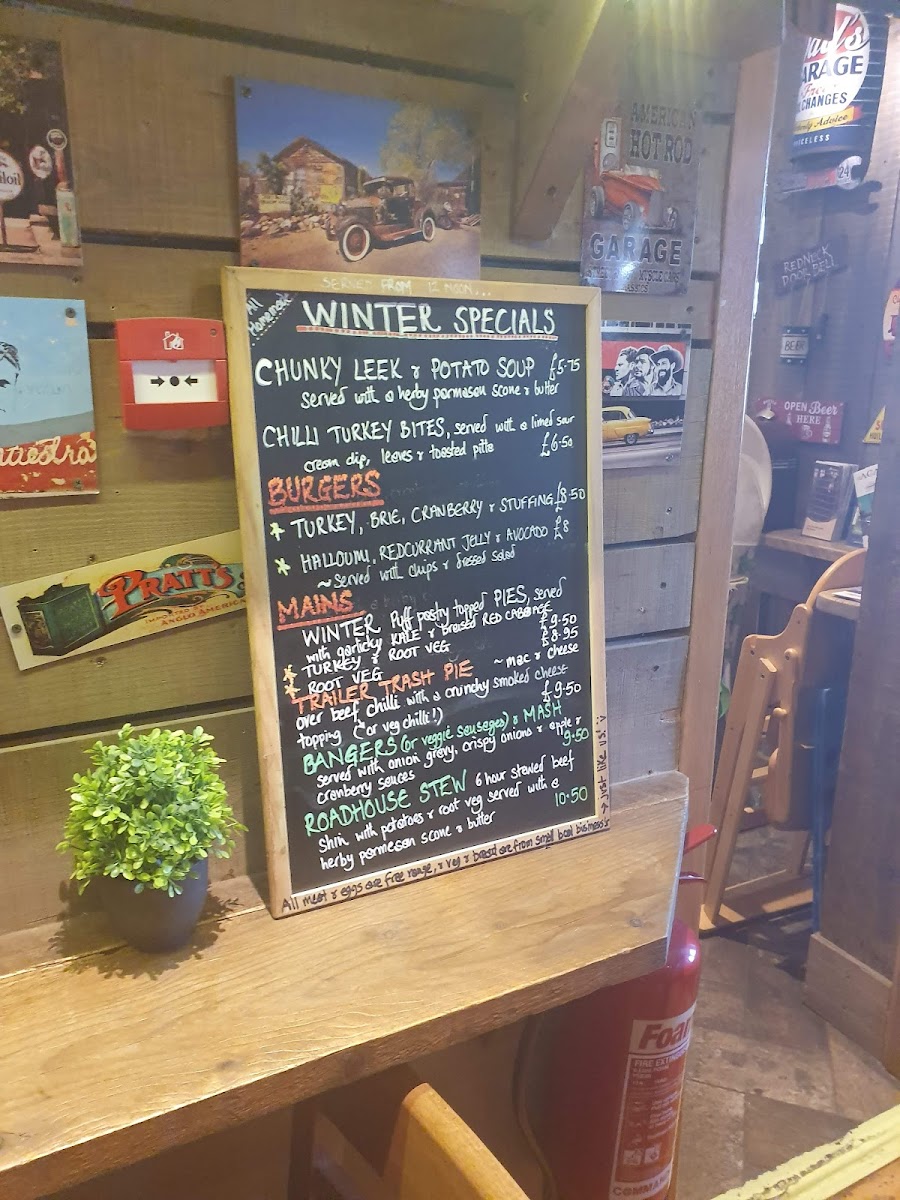 SERVED FROM 12 NOON...
All Homemade
WINTER SPECIALS
CHUNKY LEEK & POTATO SOUP £5.75
served with a herby parmesan scone & butter
CHILLI TURKEY BITES, served with a limed sour
cream dip, leaves & toasted pitta £6.50
BURGERS
* TURKEY, BRIE, CRANBERRY & STUFFING £8.50
* HALLOUMI, REDCURRANT JELLY & AVOCADO £8
~ served with chips & dressed salad
MAINS
WINTER Puff pastry topped PIES, served
with garlicky KALE & braised RED CABBAGE
* TURKEY & ROOT VEG £9.50
* ROOT VEG £8.95
TRAILER TRASH PIE ~ mac & cheese
over beef chilli with a crunchy smoked cheese
topping (or veg chilli!) £9.50
BANGERS (or veggie sausages) & MASH
served with onion gravy, crispy onions & apple &
cranberry sauces 9.50
ROADHOUSE STEW 6 hour stewed beef
shin with potatoes & root veg served with a
herby parmesan scone & butter 10.50
All meat & eggs are free range, & veg & bread are from small local business's
→ Just like us! :)
AMERICAN
HOT ROD
GARAGE
MUSCLE CARS
CLASSICS
GARAGE
Free
CHANGES
Advice
PRICELESS
24
REDNECK
DOOR BELL
BEER
OPEN Beer
HERE
maestro
PRATTS
IMPORTED
ANGLO AMERICAN
Foam
FIRE EXTINGUISHER
COMMANDER